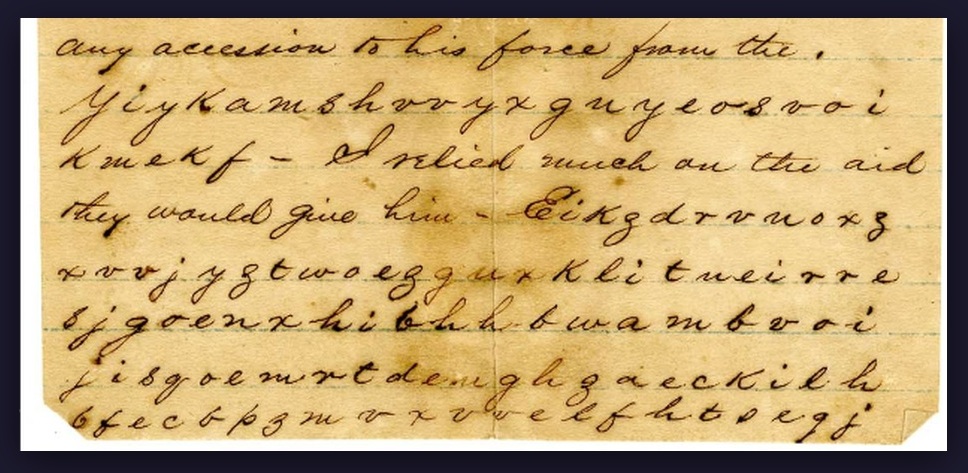 any accession to his force from the.
YiyKamshvvyxgnyeosvoi
Kmekf – I relied much on the aid
they would give him – Eikgdrvnoxz
xvvjyztwoezgnxKlitneirre
sjgoenxhibhhbwambvoi
jisgoemrtdemghgaeckilh
bfecbpzmvxvvelfhtsegj